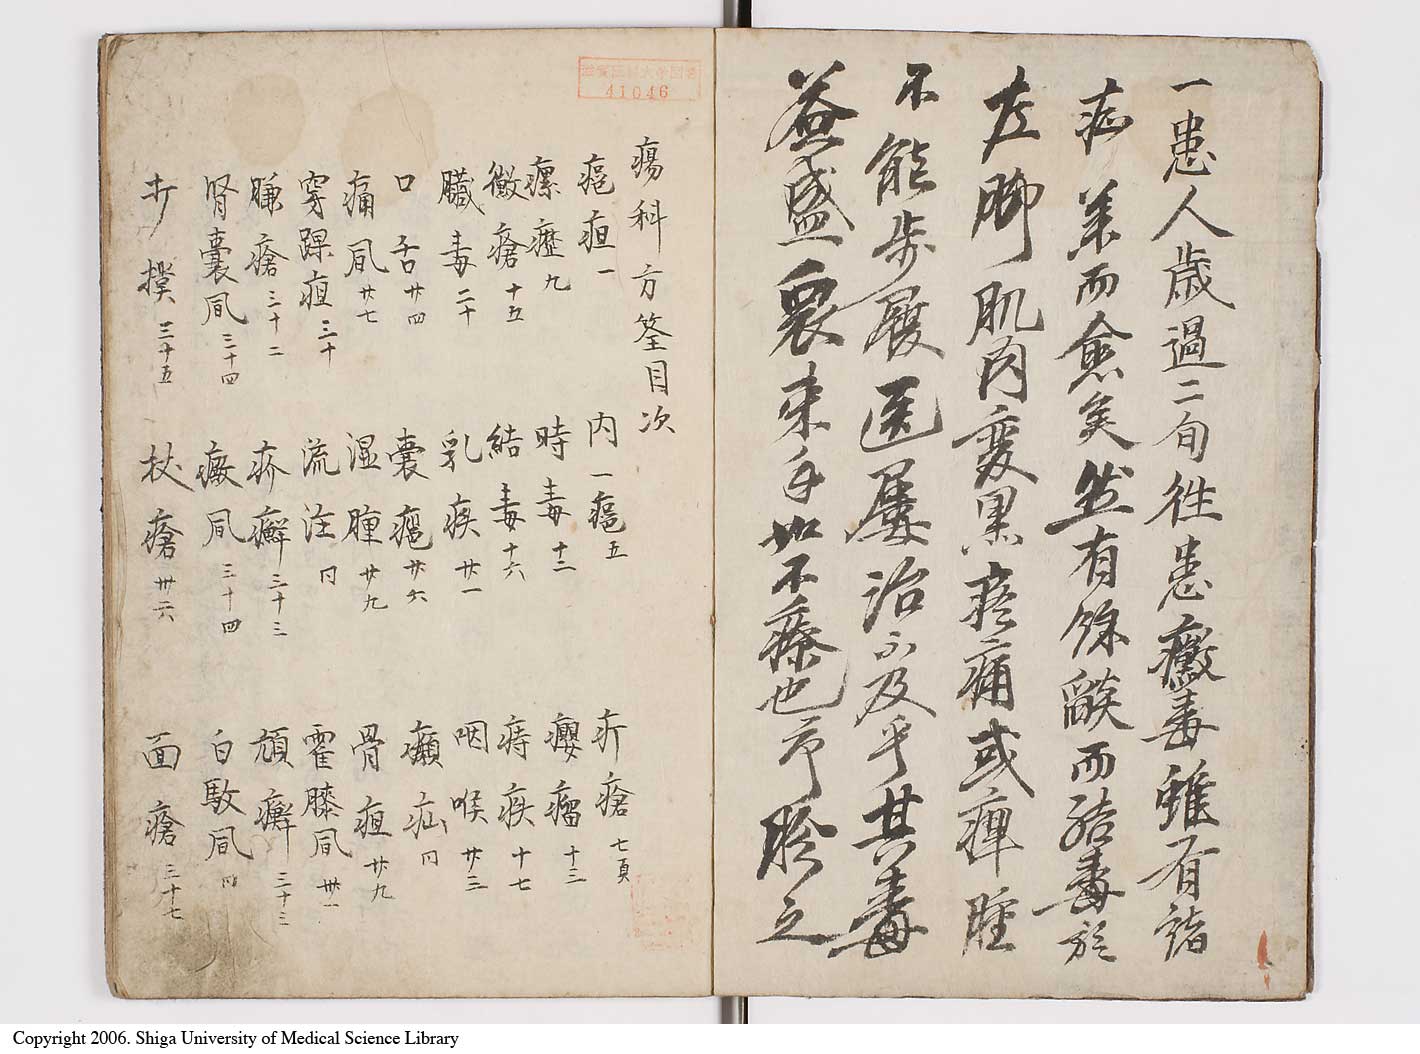 一患人歳過二旬往患黴毒雖有諸
症差而愈矣然有餘燄而結毒於
左脚肌肉変黒疼痛或痺腫
不能步履医屡治不及乎其毒
益盛衆束手如不療也予胗之
41046
瘍科方筌目次
癰疽一 内一癰五 疔瘡七頁
瘰癧九 時毒十二 癭瘤十三
黴瘡十五 結毒十六 痔疾十七
臓毒二十 乳疾廿一 咽喉廿三
口舌廿四 嚢癰廿六 癩疝同
痛風廿七 湿腫廿九 骨疽廿九
穿踝疽三十 流注同 霍膝風卅一
臁瘡三十二 疥癬三十三 頑癬三十三
腎嚢風三十四 癜風三十四 白駁風同
打撲三十五 杖瘡卅六 面瘡三十七
Copyright 2006. Shiga University of Medical Science Library